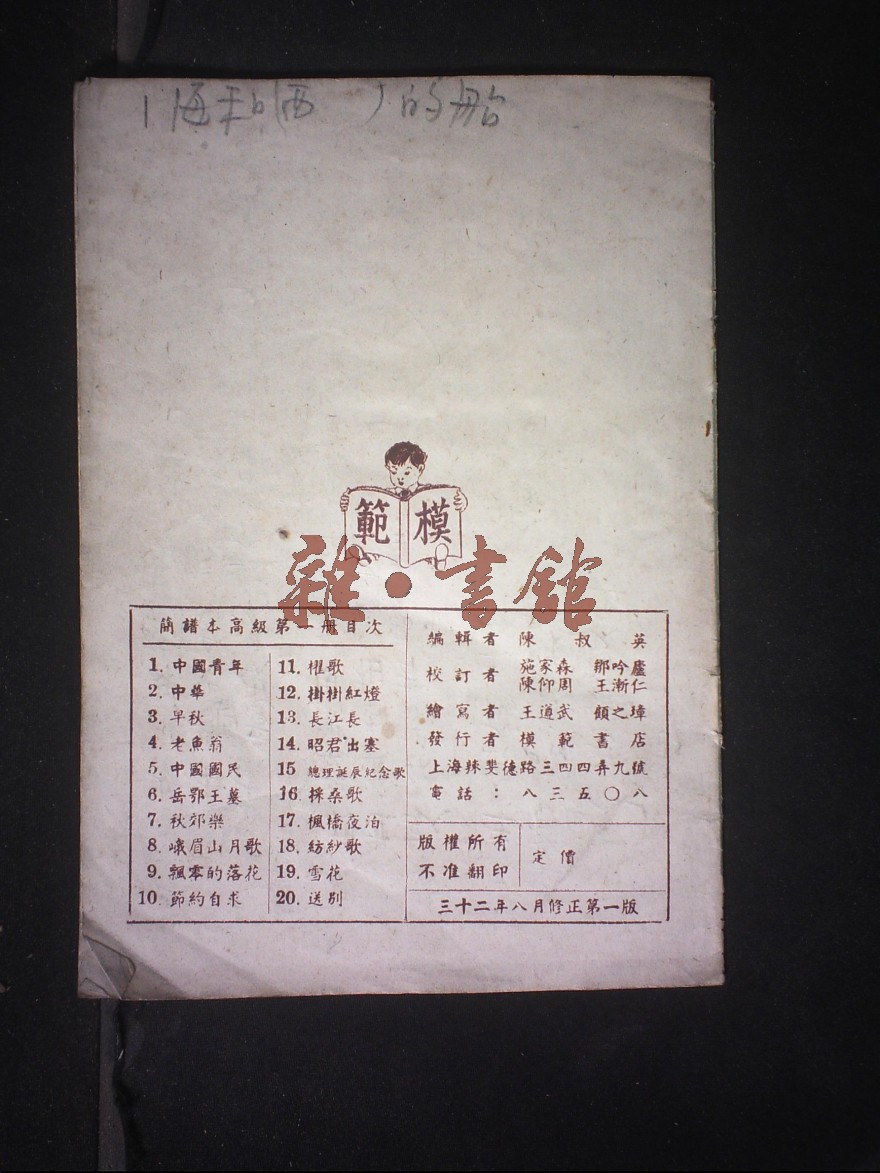 的船
模範
雜·書館
簡譜本高級第一冊目次
1. 中國青年
2. 中華
3. 早秋
4. 老魚翁
5. 中國國民
6. 岳鄂王墓
7. 秋郊樂
8. 峨眉山月歌
9. 飄零的落花
10. 節約自求
11. 櫂歌
12. 掛掛紅燈
13. 長江長
14. 昭君出塞
15 總理誕辰紀念歌
16. 採桑歌
17. 楓橋夜泊
18. 紡紗歌
19. 雪花
20. 送別
編輯者 陳叔英
校訂者 施家森 鄒吟廬
陳仰周 王漸仁
繪寫者 王道武 顧之璋
發行者 模範書店
上海辣斐德路三四四弄九號
電話：八三五〇八
版權所有
不准翻印
定價
三十二年八月修正第一版